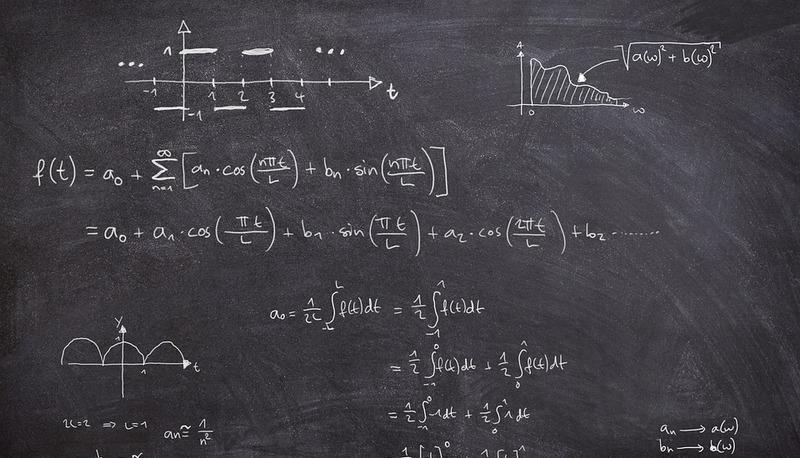 1 ...
... -1 1 2 3 4 t
-1
A √(a(ω)² + b(ω)²)
0 ω
f(t) = a₀ + ∑ₙ₌₁^∞ [aₙ · cos(nπt/L) + bₙ · sin(nπt/L)]
= a₀ + a₁ · cos(πt/L) + b₁ · sin(πt/L) + a₂ · cos(2πt/L) + b₂ ........
a₀ = 1/2L ∫₋L^L f(t)dt = 1/2 ∫₋₁^1 f(t)dt
y
1
1 t
= 1/2 ∫₋₁^0 f(t)dt + 1/2 ∫₀^1 f(t)dt
= 1/2 ∫₋₁^0 -1dt + 1/2 ∫₀^1 1dt
2L=2 ⇒ L=1 aₙ ≅ 1/n²
aₙ → a(ω)
bₙ → b(ω)